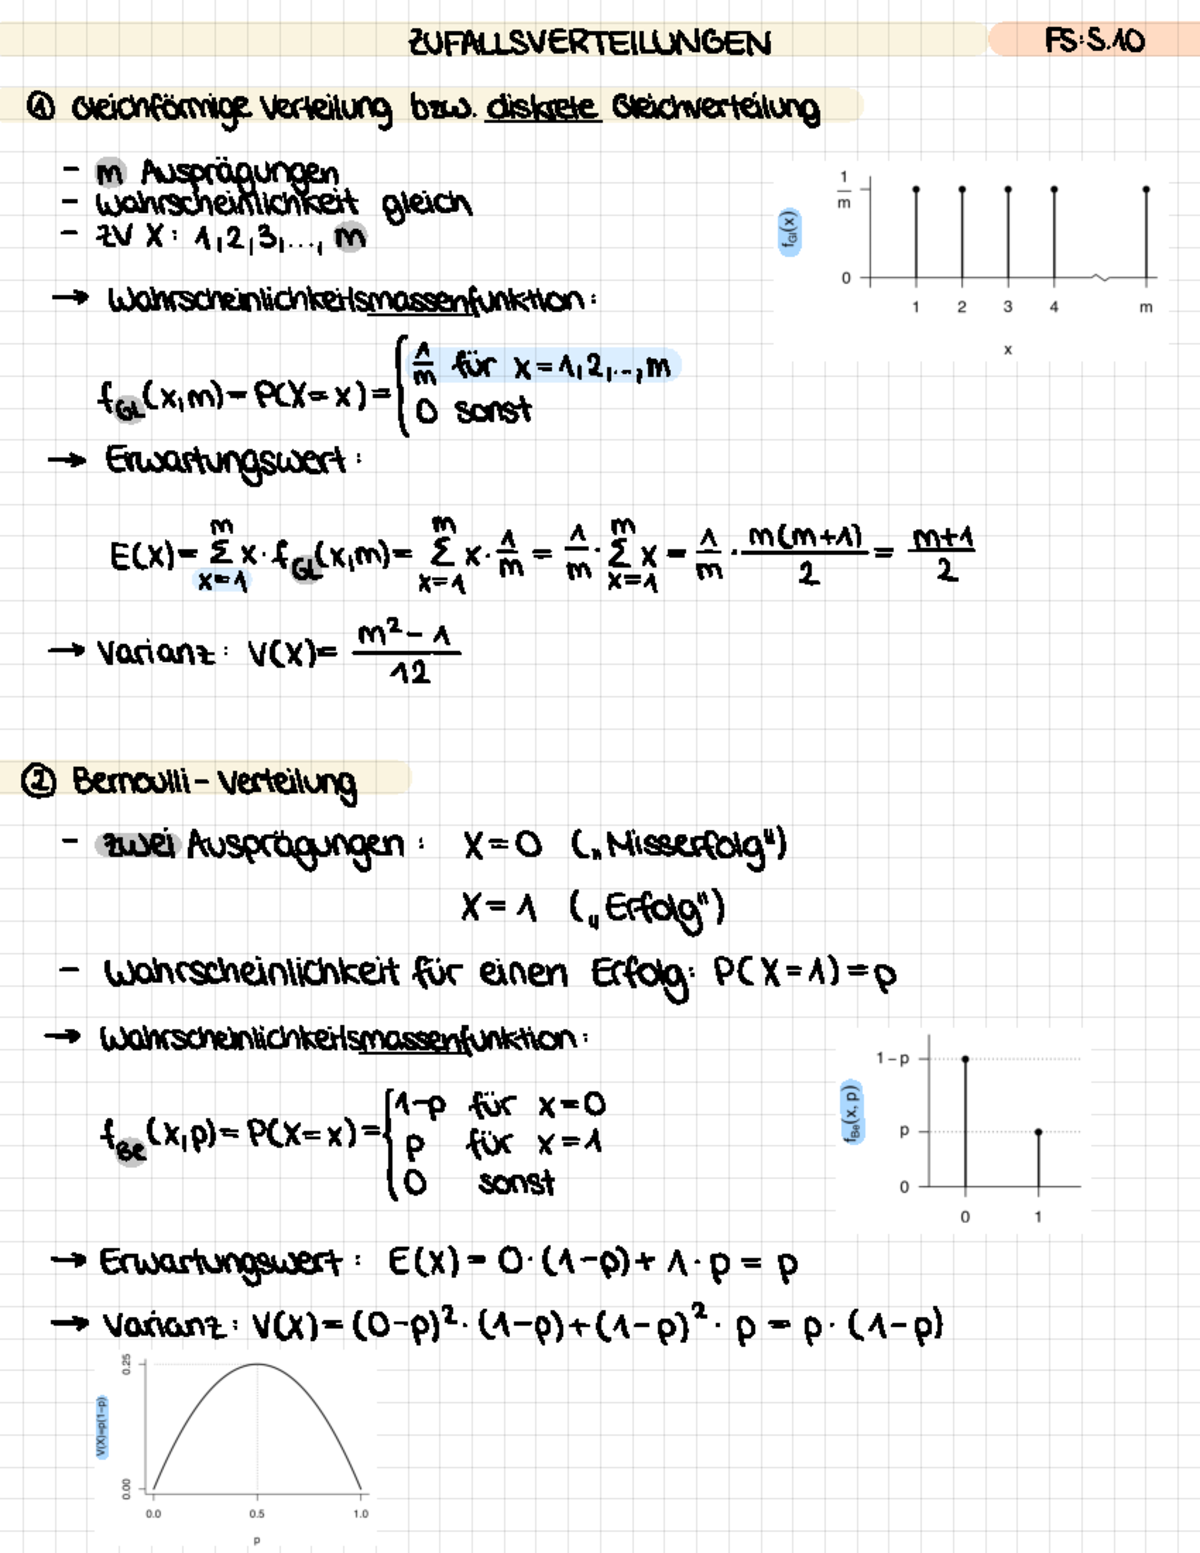 ZUFALLSVERTEILUNGEN FS: S.10
① Gleichförmige Verteilung bzw. diskrete Gleichverteilung
- m Ausprägungen
- Wahrscheinlichkeit gleich
- ZV X: 1,2,3,..., m
→ Wahrscheinlichkeitsmassenfunktion:
f_GL(x,m) = P(X=x) = { 1/m für x=1,2,..,m
0 sonst
1/m
0
f_Gl(x)
1 2 3 4 m
x
→ Erwartungswert:
E(X) = Σ_{x=1}^{m} x · f_GL(x,m) = Σ_{x=1}^{m} x · 1/m = 1/m · Σ_{x=1}^{m} x = 1/m · m(m+1)/2 = m+1/2
→ Varianz: V(X) = m²-1/12
② Bernoulli-Verteilung
- zwei Ausprägungen: X=0 („Misserfolg")
X=1 („Erfolg")
- Wahrscheinlichkeit für einen Erfolg: P(X=1)=p
→ Wahrscheinlichkeitsmassenfunktion:
f_Be(x,p) = P(X=x) = { 1-p für x=0
p für x=1
0 sonst
1-p
p
0
f_Be(x, p)
0 1
→ Erwartungswert: E(X) = 0·(1-p) + 1·p = p
→ Varianz: V(X) = (0-p)²·(1-p)+(1-p)²·p = p·(1-p)
0.25
V(X)=p(1-p)
0.00
0.0 0.5 1.0
p